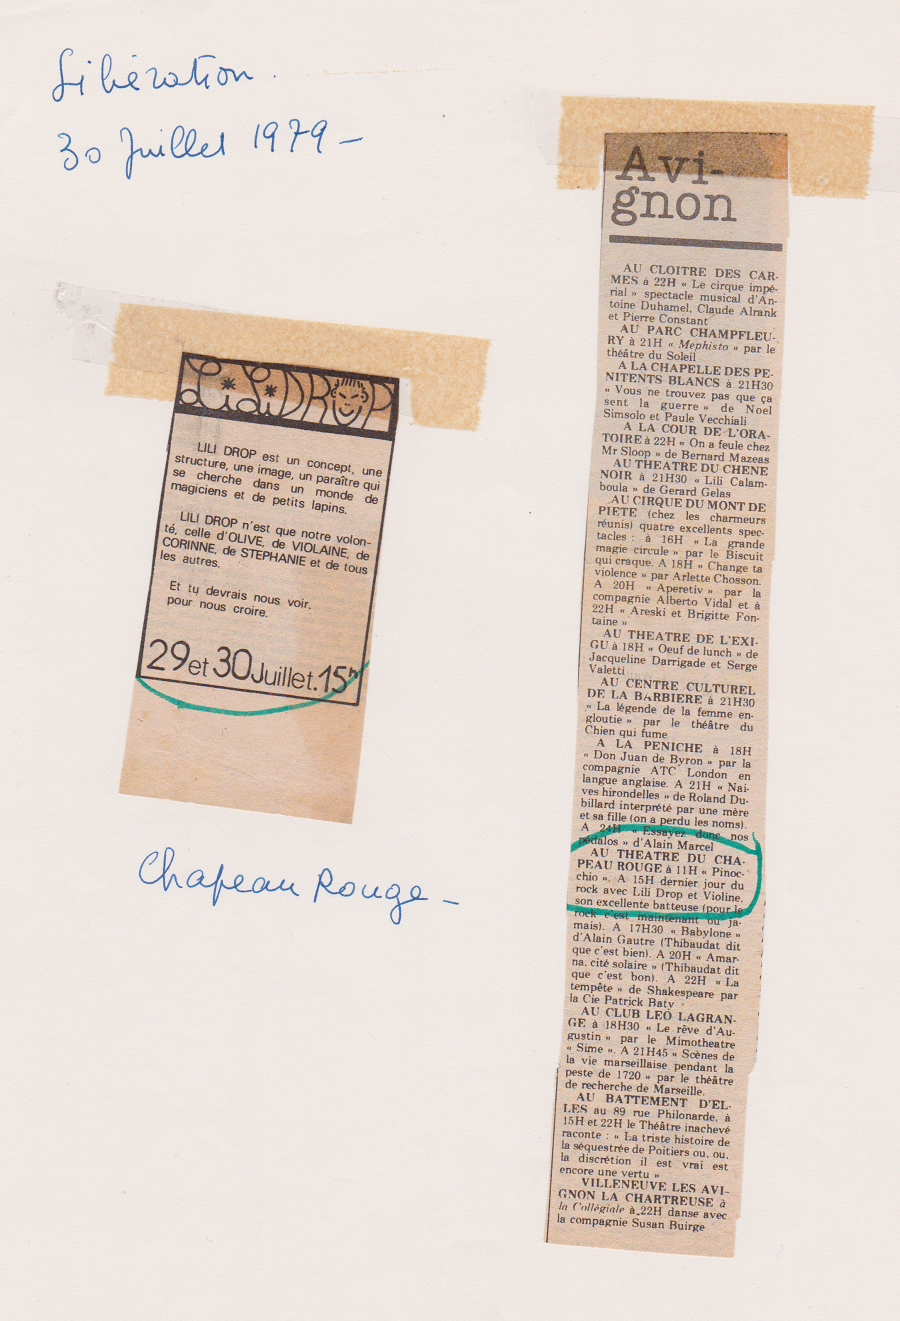 Libération.
30 Juillet 1979 –
LiLi DROP
LILI DROP est un concept, une
structure, une image, un paraître qui
se cherche dans un monde de
magiciens et de petits lapins.
LILI DROP n'est que notre volon-
té, celle d'OLIVE, de VIOLAINE, de
CORINNE, de STEPHANIE et de tous
les autres.
Et tu devrais nous voir.
pour nous croire.
29 et 30 Juillet. 15h
Chapeau Rouge –
Avi-
gnon
AU CLOITRE DES CAR-
MES à 22H « Le cirque impé-
rial » spectacle musical d'An-
toine Duhamel, Claude Alrank
et Pierre Constant
AU PARC CHAMPFLEU-
RY à 21H « Mephisto » par le
théâtre du Soleil
A LA CHAPELLE DES PE-
NITENTS BLANCS à 21H30
« Vous ne trouvez pas que ça
sent la guerre » de Noel
Simsolo et Paule Vecchiali
A LA COUR DE L'ORA-
TOIRE à 22H « On a feule chez
Mr Sloop » de Bernard Mazeas
AU THEATRE DU CHENE
NOIR à 21H30 « Lili Calam-
boula » de Gerard Gelas
AU CIRQUE DU MONT DE
PIETE (chez les charmeurs
réunis) quatre excellents spec-
tacles : à 16H « La grande
magie circule » par le Biscuit
qui craque. A 18H « Change ta
violence » par Arlette Chosson.
A 20H « Aperetiv » par la
compagnie Alberto Vidal et à
22H « Areski et Brigitte Fon-
taine »
AU THEATRE DE L'EXI-
GU à 18H « Oeuf de lunch » de
Jacqueline Darrigade et Serge
Valetti
AU CENTRE CULTUREL
DE LA BARBIERE à 21H30
« La légende de la femme en-
gloutie » par le théâtre du
Chien qui fume
A LA PENICHE à 18H
« Don Juan de Byron » par la
compagnie ATC London en
langue anglaise. A 21H « Nai-
ves hirondelles » de Roland Du-
billard interprété par une mère
et sa fille (on a perdu les noms).
A 24H « Essayez donc nos
pédalos » d'Alain Marcel
AU THEATRE DU CHA-
PEAU ROUGE à 11H « Pinoc-
chio ». A 15H dernier jour du
rock avec Lili Drop et Violine,
son excellente batteuse (pour le
rock c'est maintenant ou ja-
mais). A 17H30 « Babylone »
d'Alain Gautre (Thibaudat dit
que c'est bien). A 20H « Amar-
na, cité solaire » (Thibaudat dit
que c'est bon). A 22H « La
tempête » de Shakespeare par
la Cie Patrick Baty
AU CLUB LEO LAGRAN-
GE à 18H30 « Le rêve d'Au-
gustin » par le Mimotheatre
« Sime ». A 21H45 « Scènes de
la vie marseillaise pendant la
peste de 1720 » par le théâtre
de recherche de Marseille.
AU BATTEMENT D'EL-
LES au 89 rue Philonarde, à
15H et 22H le Théâtre inachevé
raconte : « La triste histoire de
la séquestrée de Poitiers ou, ou,
la discrétion il est vrai est
encore une vertu »
VILLENEUVE LES AVI-
GNON LA CHARTREUSE à
la Collégiale à 22H danse avec
la compagnie Susan Buirge